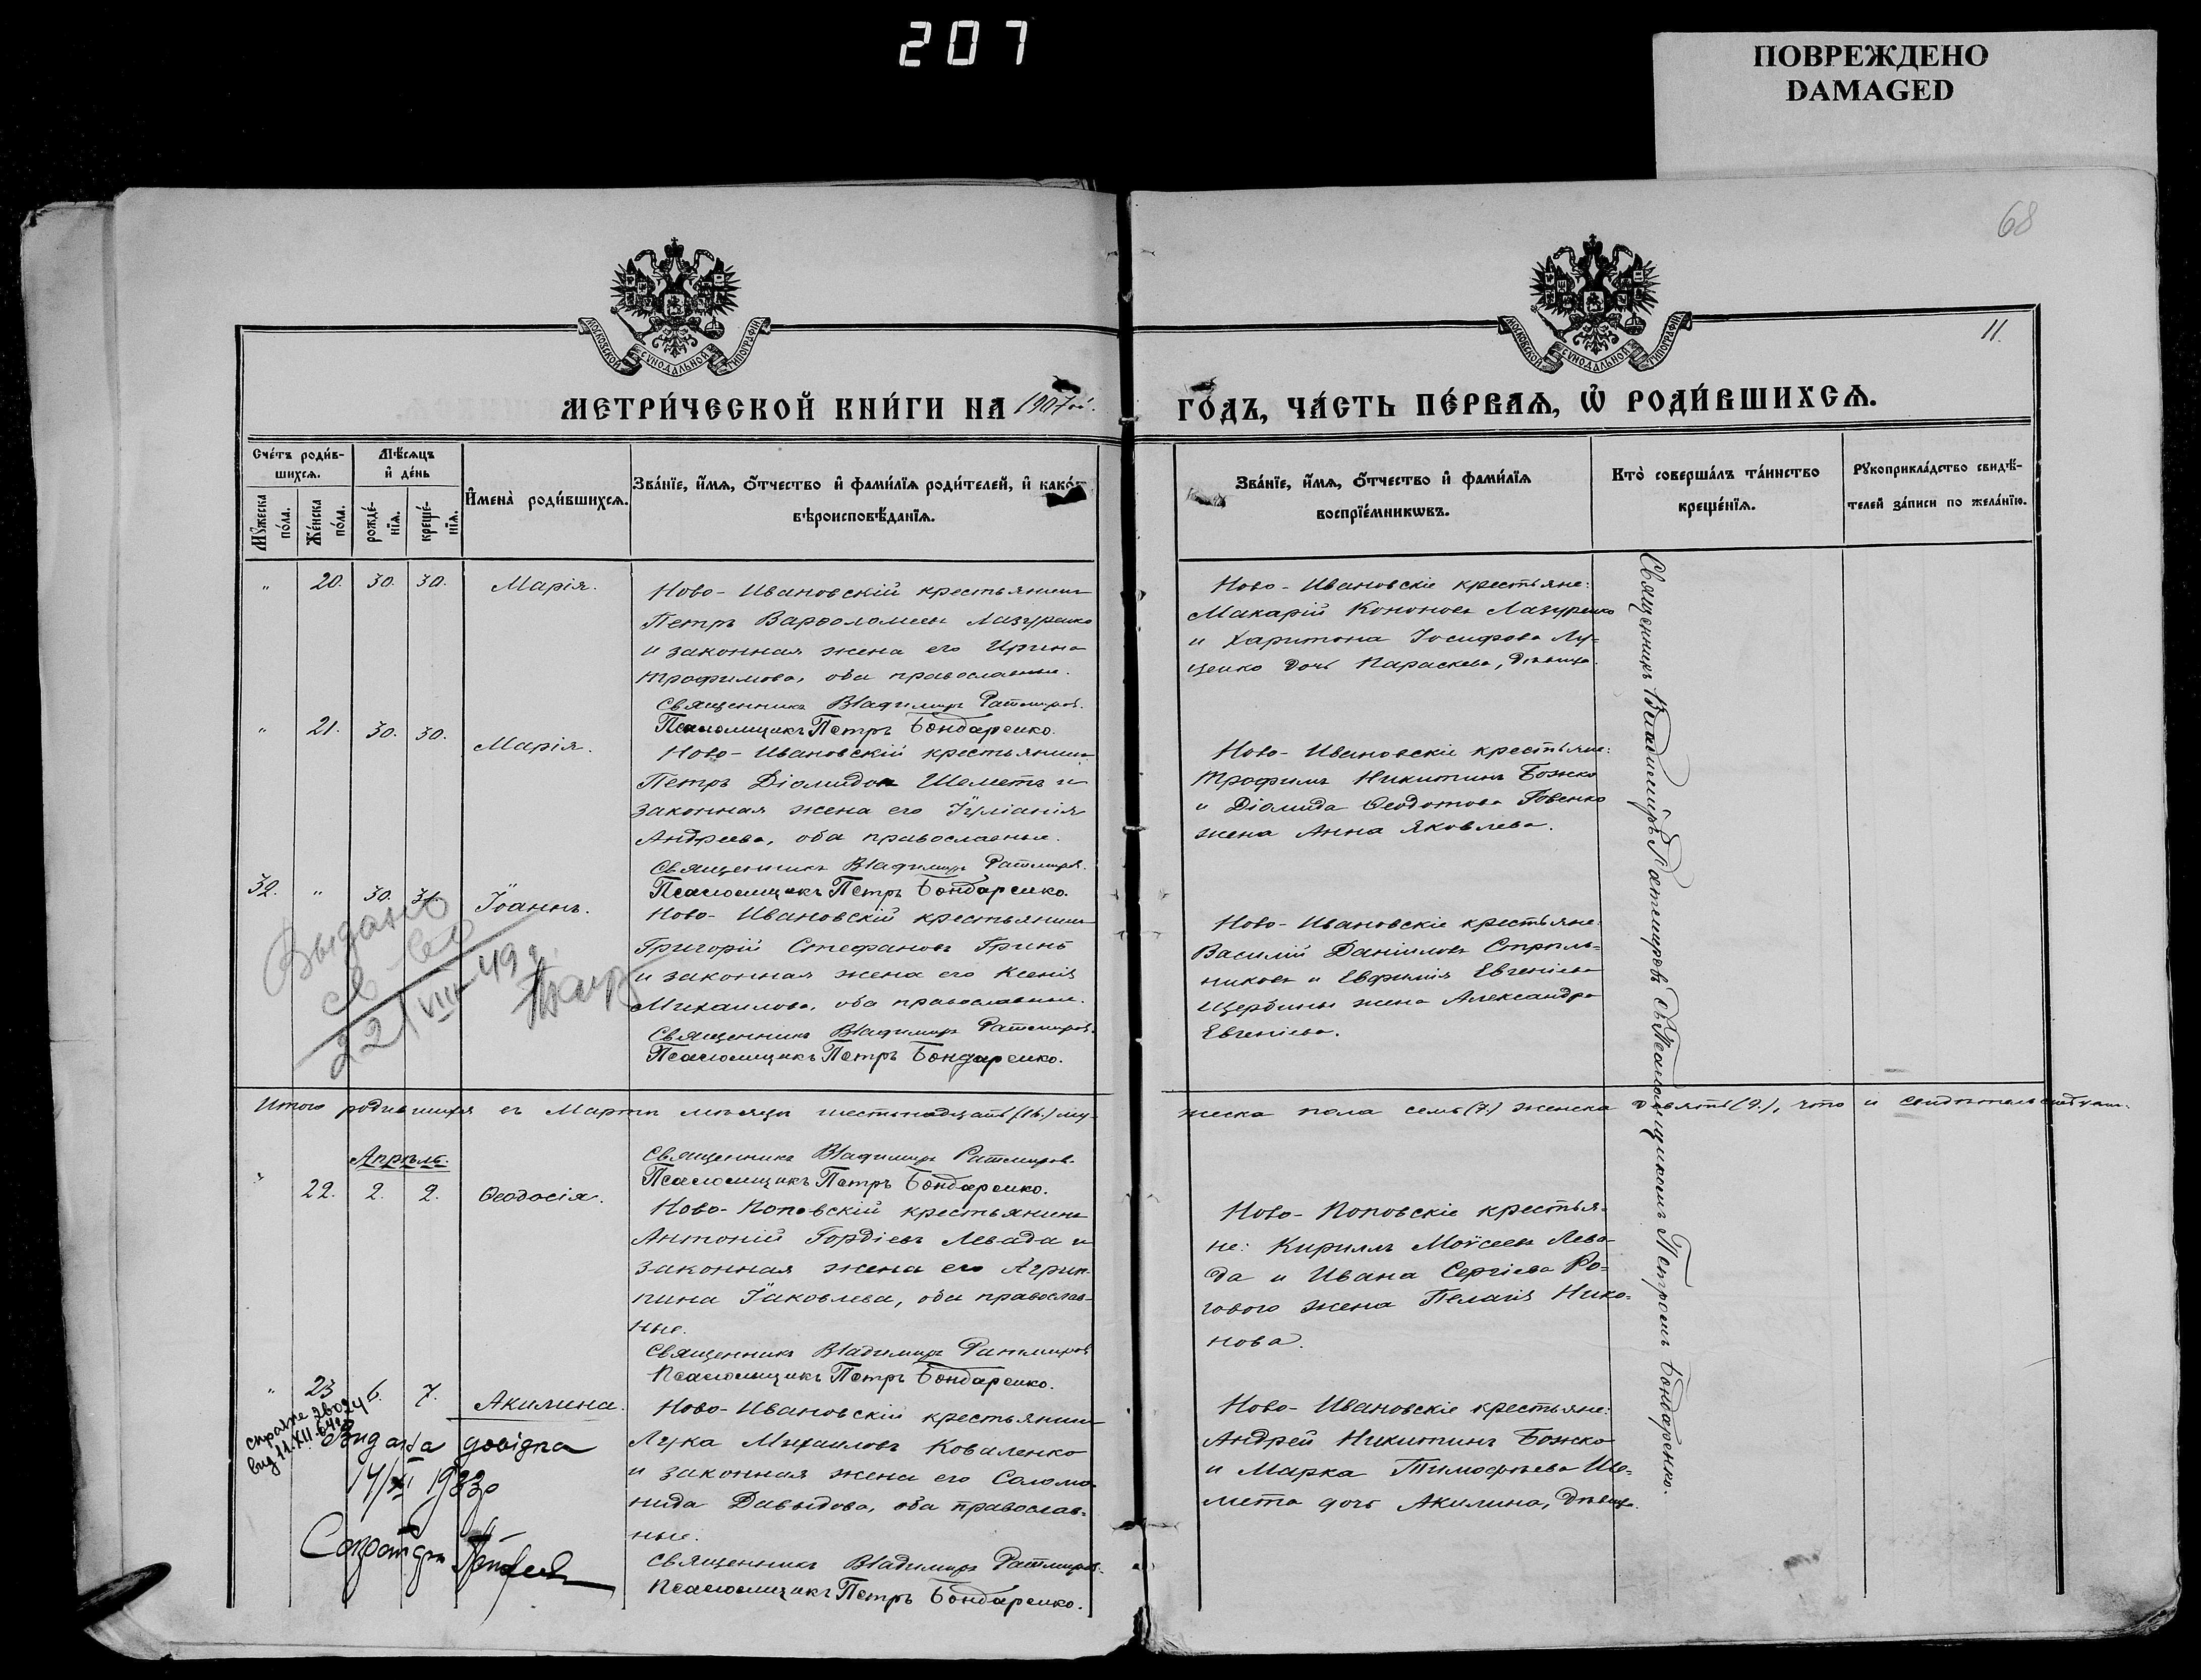 207
ПОВРЕЖДЕНО
DAMAGED
68
11.
МОСКОВСКОЙ СѴНОДАЛЬНОЙ ТИПОГРАФІИ
МОСКОВСКОЙ СѴНОДАЛЬНОЙ ТИПОГРАФІИ
МЕТРИ́ЧЕСКОЙ КНИ́ГИ НА 1907ой.
ГО́ДЪ, ЧА́СТЬ ПЕ́РВАѦ, Ѡ҆ РОДИ́ВШИХСѦ.
Сче́тъ роди́в-
шихсѧ.
Мꙋ́жеска
по́ла.
Же́нска
по́ла.
Мѣ́сѧцъ
и҆ де́нь
рожде́-
нїѧ.
креще́-
нїѧ.
И҆мена̀ роди́вшихсѧ.
Зва́нїе, и҆́мѧ, ѻ҆́тчество и҆ фами́лїѧ роди́телей, и҆ како́гѡ
вѣроисповѣ́данїѧ.
Зва́нїе, и҆́мѧ, ѻ҆́тчество и҆ фами́лїѧ
воспрїе́мникѡвъ.
Кто̀ соверша́лъ та́инство
креще́нїѧ.
Рꙋкоприкла́дство свидѣ́-
телей за́писи по жела́нїю.
" 20. 30. 30. Марія.
Ново-Ивановскій крестьянинъ
Петръ Варѳоломеевъ Лазуренко
и законная жена его Ирина
Трофимова, оба православные.
Священникъ Владимиръ Ратмировъ.
Псаломщикъ Петръ Бондаренко.
Ново-Ивановскіе крестьяне:
Макарій Кононовъ Лазуренко
и Харитона Іосифова Лу-
ценко дочь Параскева, дѣвица.
" 21. 30. 30. Марія.
Ново-Ивановскій крестьянинъ
Петръ Діомидовъ Шеметъ и
законная жена его Іуліанія
Андреева, оба православные.
Священникъ Владимиръ Ратмировъ.
Псаломщикъ Петръ Бондаренко.
Ново-Ивановскіе крестьяне:
Трофимъ Никитинъ Божко
и Діомида Ѳеодотова Говенко
жена Анна Яковлева.
32. " 30. 31. Іоаннъ.
Ново-Ивановскій крестьянинъ
Григорій Стефановъ Гринь
и законная жена его Ксенія
Михаилова, оба православные.
Священникъ Владимиръ Ратмировъ.
Псаломщикъ Петръ Бондаренко.
Ново-Ивановскіе крестьяне:
Василій Даніиловъ Стрѣль-
никовъ и Евфимія Евгеніева
Щербины жена Александра
Евгеніева.
Выдано
св-во
22/VIII-49 г.
Итого родившихся въ Мартѣ мѣсяцѣ шестнадцать (16.) му-
жеска пола семь (7.) женска девять (9.), что и
Апрѣль.
Священникъ Владимиръ Ратмировъ.
Псаломщикъ Петръ Бондаренко.
" 22. 2. 2. Ѳеодосія.
Ново-Поповскій крестьянинъ
Антоній Гордіевъ Левада и
законная жена его Агрип-
пина Іаковлева, оба православ-
ные.
Священникъ Владимиръ Ратмировъ
Псаломщикъ Петръ Бондаренко.
Ново-Поповскіе крестья-
не: Кириллъ Моѵсеевъ Лева-
да и Ивана Сергіева Ро-
гового жена Пелагія Нико-
нова.
" 23 6. 7. Акилина.
Ново-Ивановскій крестьянинъ
Лука Михаиловъ Коваленко
и законная жена его Соломо-
нида Давыдова, оба православ-
ные.
Священникъ Владимиръ Ратмировъ.
Псаломщикъ Петръ Бондаренко.
Ново-Ивановскіе крестьяне:
Андрей Никитинъ Божко
и Марка Тимофѣева Ше-
мета дочь Акилина, дѣвица.
вид 11.XII.
Видана довідка
Священникъ Владимиръ Ратмировъ съ Псаломщикомъ Петромъ Бондаренко.